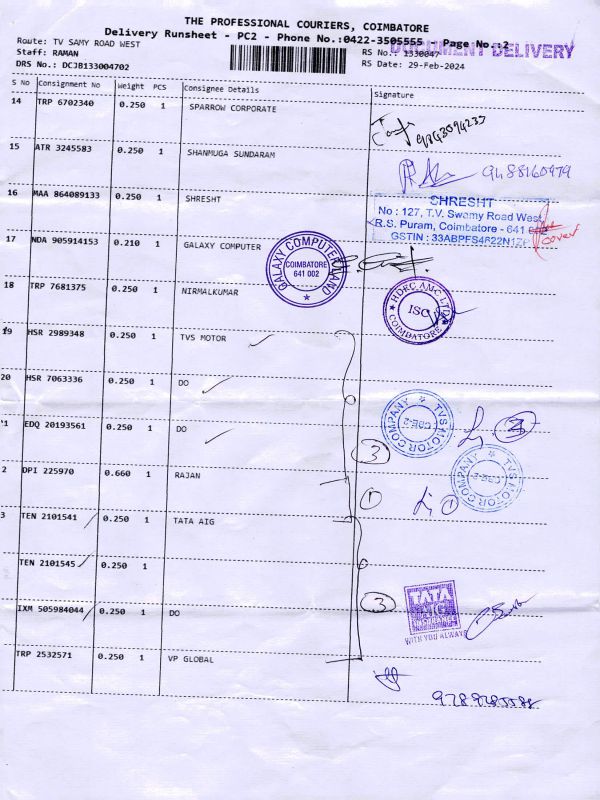 THE PROFESSIONAL COURIERS, COIMBATORE
Delivery Runsheet - PC2 - Phone No.:0422-3505555 Page No.:2
DOCUMENT DELIVERY
Route: TV SAMY ROAD WEST RS No.: 1330047
Staff: RAMAN RS Date: 29-Feb-2024
DRS No.: DCJB133004702
S No Consignment No Weight PCS Consignee Details Signature
14 TRP 6702340 0.250 1 SPARROW CORPORATE
15 ATR 3245583 0.250 1 SHANMUGA SUNDARAM
9488160979
16 MAA 864089133 0.250 1 SHRESHT
SHRESHT
No : 127, T.V. Swamy Road West
R.S. Puram, Coimbatore - 641
GSTIN : 33ABPFS4622N1ZP
cover
17 NDA 905914153 0.210 1 GALAXY COMPUTER
GALAXY COMPUTER LAND
COIMBATORE
641 002
18 TRP 7681375 0.250 1 NIRMALKUMAR
HDFC AMC LTD
ISC
COIMBATORE
19 HSR 2989348 0.250 1 TVS MOTOR
20 HSR 7063336 0.250 1 DO
TVS MOTOR COMPANY
1 EDQ 20193561 0.250 1 DO
3
TVS MOTOR COMPANY
2 DPI 225970 0.660 1 RAJAN
1 1
3 TEN 2101541 0.250 1 TATA AIG
TEN 2101545 0.250 1
IXM 505984044 0.250 1 DO
3
TATA
AIG
INSURANCE
WITH YOU ALWAYS
TRP 2532571 0.250 1 VP GLOBAL